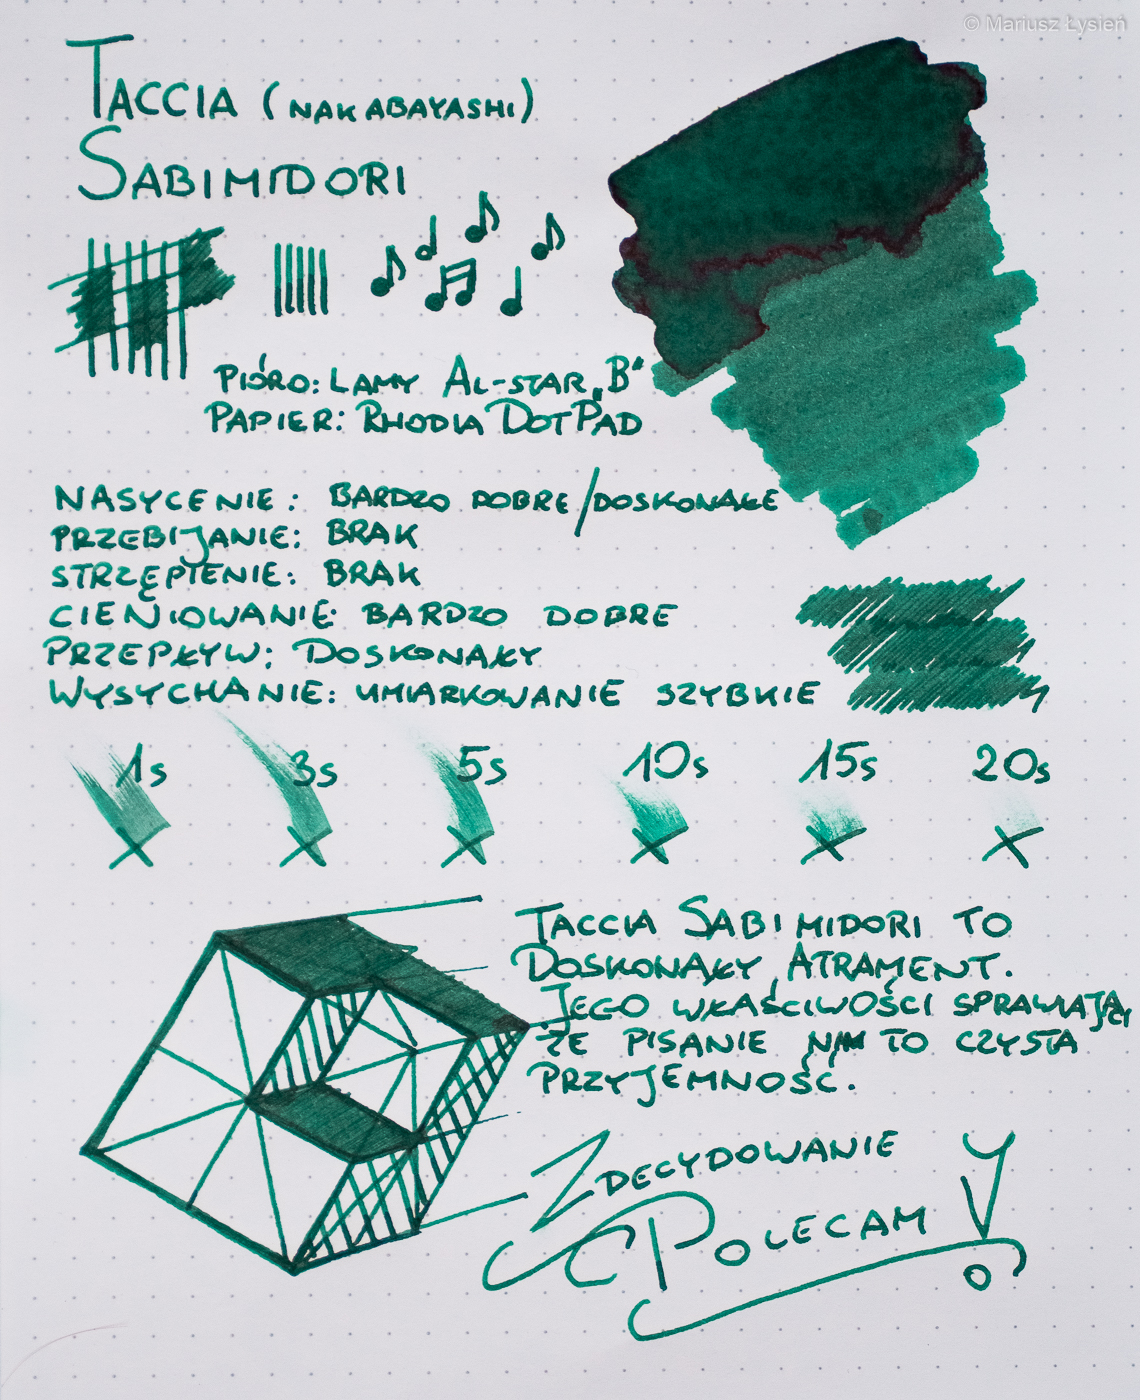 © Mariusz Łysień
TACCIA (NAKABAYASHI)
SABIMIDORI
PIÓRO: LAMY AL-STAR „B“
PAPIER: RHODIA DOTPAD
NASYCENIE: BARDZO DOBRE/DOSKONAŁE
PRZEBIJANIE: BRAK
STRZĘPIENIE: BRAK
CIENIOWANIE: BARDZO DOBRE
PRZEPŁYW: DOSKONAŁY
WYSYCHANIE: UMIARKOWANIE SZYBKIE
1s 3s 5s 10s 15s 20s
TACCIA SABIMIDORI TO
DOSKONAŁY ATRAMENT.
JEGO WŁAŚCIWOŚCI SPRAWIAJĄ,
ŻE PISANIE NIM TO CZYSTA
PRZYJEMNOŚĆ.
ZDECYDOWANIE
POLECAM!